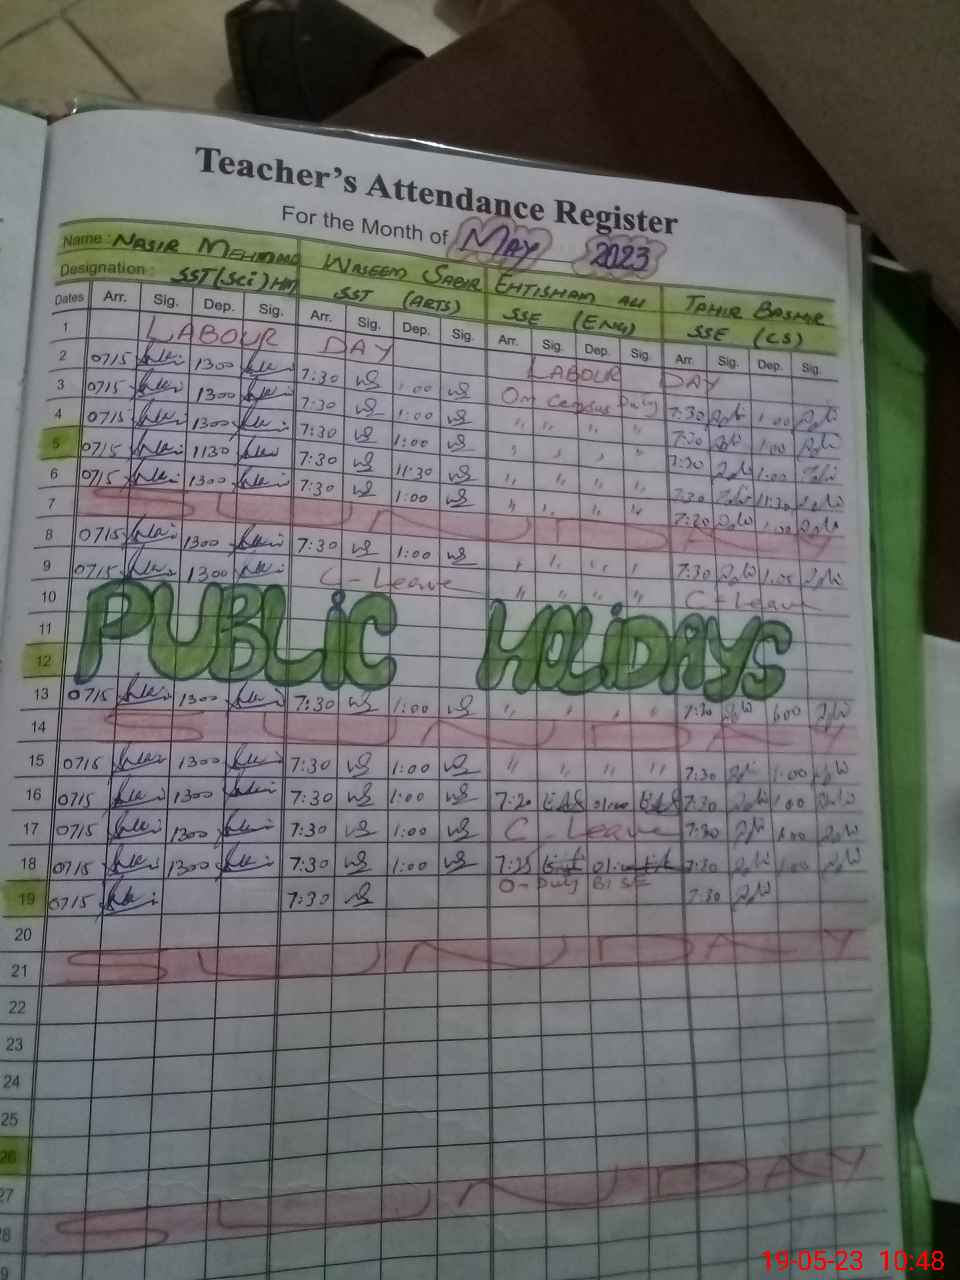 Teacher's Attendance Register
For the Month of MAY 2023
Name: NASIR MEHMOOD WASEEM SABIR EHTISHAM ALI TAHIR BASHIR
Designation: SST (Sci) HM SST (ARTS) SSE (ENG) SSE (CS)
Dates Arr. Sig. Dep. Sig. Arr. Sig. Dep. Sig. Arr. Sig. Dep. Sig. Arr. Sig. Dep. Sig.
1 LABOUR DAY LABOUR DAY
2 0715 1300 7:30 1:00 On Census Duty 7:30 1:00
3 0715 1300 7:30 1:00 " " " " 7:30 1:00
4 0715 1300 7:30 1:00 " " " " 7:30 1:00
5 0715 1130 7:30 11:30 " " " " 7:30 11:30
6 0715 1300 7:30 1:00 " " " " 7:30 1:00
7 SUNDAY
8 0715 1300 7:30 1:00 " " " " 7:30 1:00
9 0715 1300 C-Leave " " " " C-Leave
10
11 PUBLIC HOLIDAYS
12
13 0715 1300 7:30 1:00 " " " " 7:30 1:00
14 SUNDAY
15 0715 1300 7:30 1:00 " " " " 7:30 1:00
16 0715 1300 7:30 1:00 7:20 01:00 7:30 1:00
17 0715 1300 7:30 1:00 C-Leave 7:30 1:00
18 0715 1300 7:30 1:00 7:25 7:30 1:00
19 0715 7:30 O-Duty BISE 7:30
20
21 SUNDAY
22
23
24
25
26
27
28 SUNDAY
19-05-23 10:48